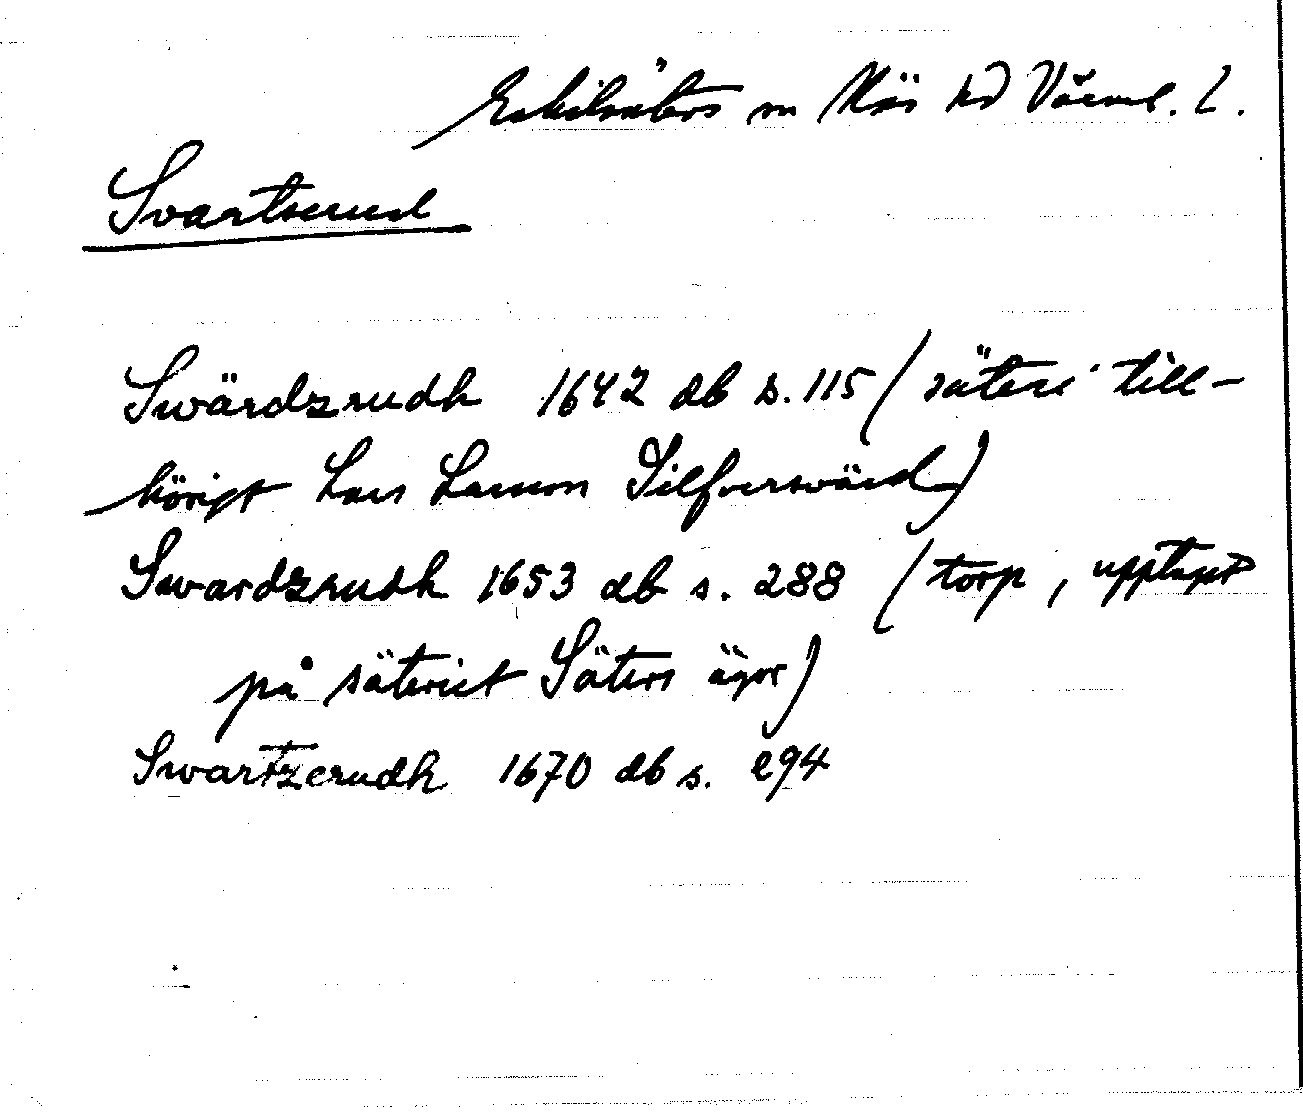 Eskilsäters sn Näs hd Värml. l.
Svartserud
Swärdzrudh 1642 db s. 115 (säteri till-
hörigt Lars Larsson Silfversvärd)
Swardzrudh 1653 db s. 288 (torp, upptaget
på säteriet Säters ägor)
Swartzerudh 1670 db s. 294